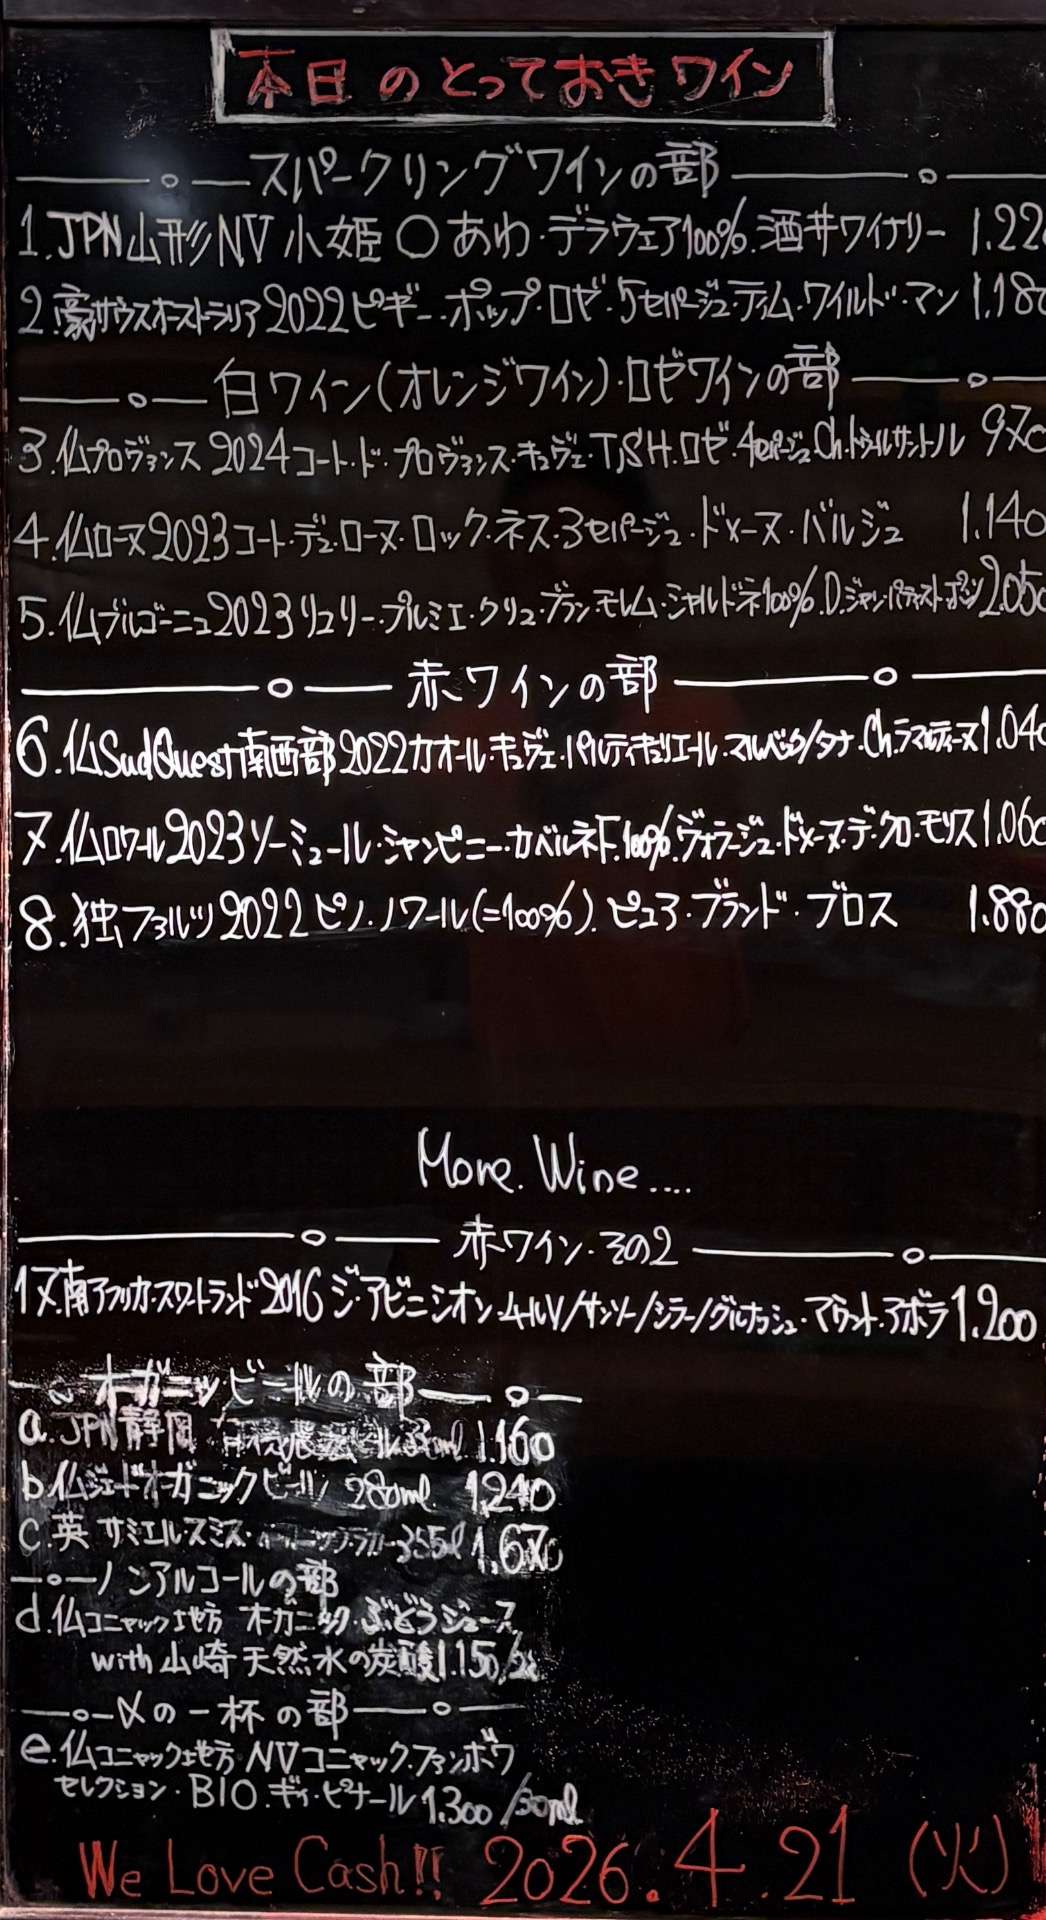 本日のとっておきワイン
スパークリングワインの部
1.JPN山形NV小姫○あわ・デラウェア100%.酒井ワイナリー 1.22
2.豪サウスオーストラリア2022ピギー・ポップ・ロゼ・5セパージュ・ティム・ワイルド・マン 1.180
白ワイン(オレンジワイン)・ロゼワインの部
3.仏プロヴァンス2024コート・ド・プロヴァンス・キュヴェ・TSH.ロゼ・4セパージュ.Ch.トゥールサントル 970
4.仏ローヌ2023コート・デュ・ローヌ・ロック・ネス・3セパージュ・ドメーヌ・バルジュ 1.140
5.仏ブルゴーニュ2023リュリー・プルミエ・クリュ・ブラン モレム・シャルドネ100%.D.ジャン・バティスト・ポンソ 2.050
赤ワインの部
6.仏SudOuest南西部2022カオール・キュヴェ・パルティキュリエール・マルベック/タナ・Ch.ラマルティーヌ 1.040
7.仏ロワール2023ソーミュール・シャンピニー・カベルネF.100%.ヴォラージュ・ドメーヌ・デ・クロ・モリス 1.060
8.独ファルツ2022ピノ・ノワール(=100%).ピュア・ブランド・ブロス 1.880
More.Wine....
赤ワイン・その2
17.南アフリカ・スワートランド2016ジ・アビニシオン・ムールV/サンソー/シラー/グルナッシュ・マウント・アボラ 1.200
オーガニックビールの部
a.JPN静岡 ml 1.160
b.仏ジェードオーガニックビール 280ml. 1.240
c.英 サミエル・スミス・ 355 1.670
ノンアルコールの部
d.仏コニャック地方 オーガニック・ぶどうジュース
with山崎天然水の炭酸 1.150/
〆の一杯の部
e.仏コニャック地方NVコニャック.ファンボワ
セレクション・BIO.ギィ・ピナール 1.300/30ml
We Love Cash!! 2026.4.21(火)